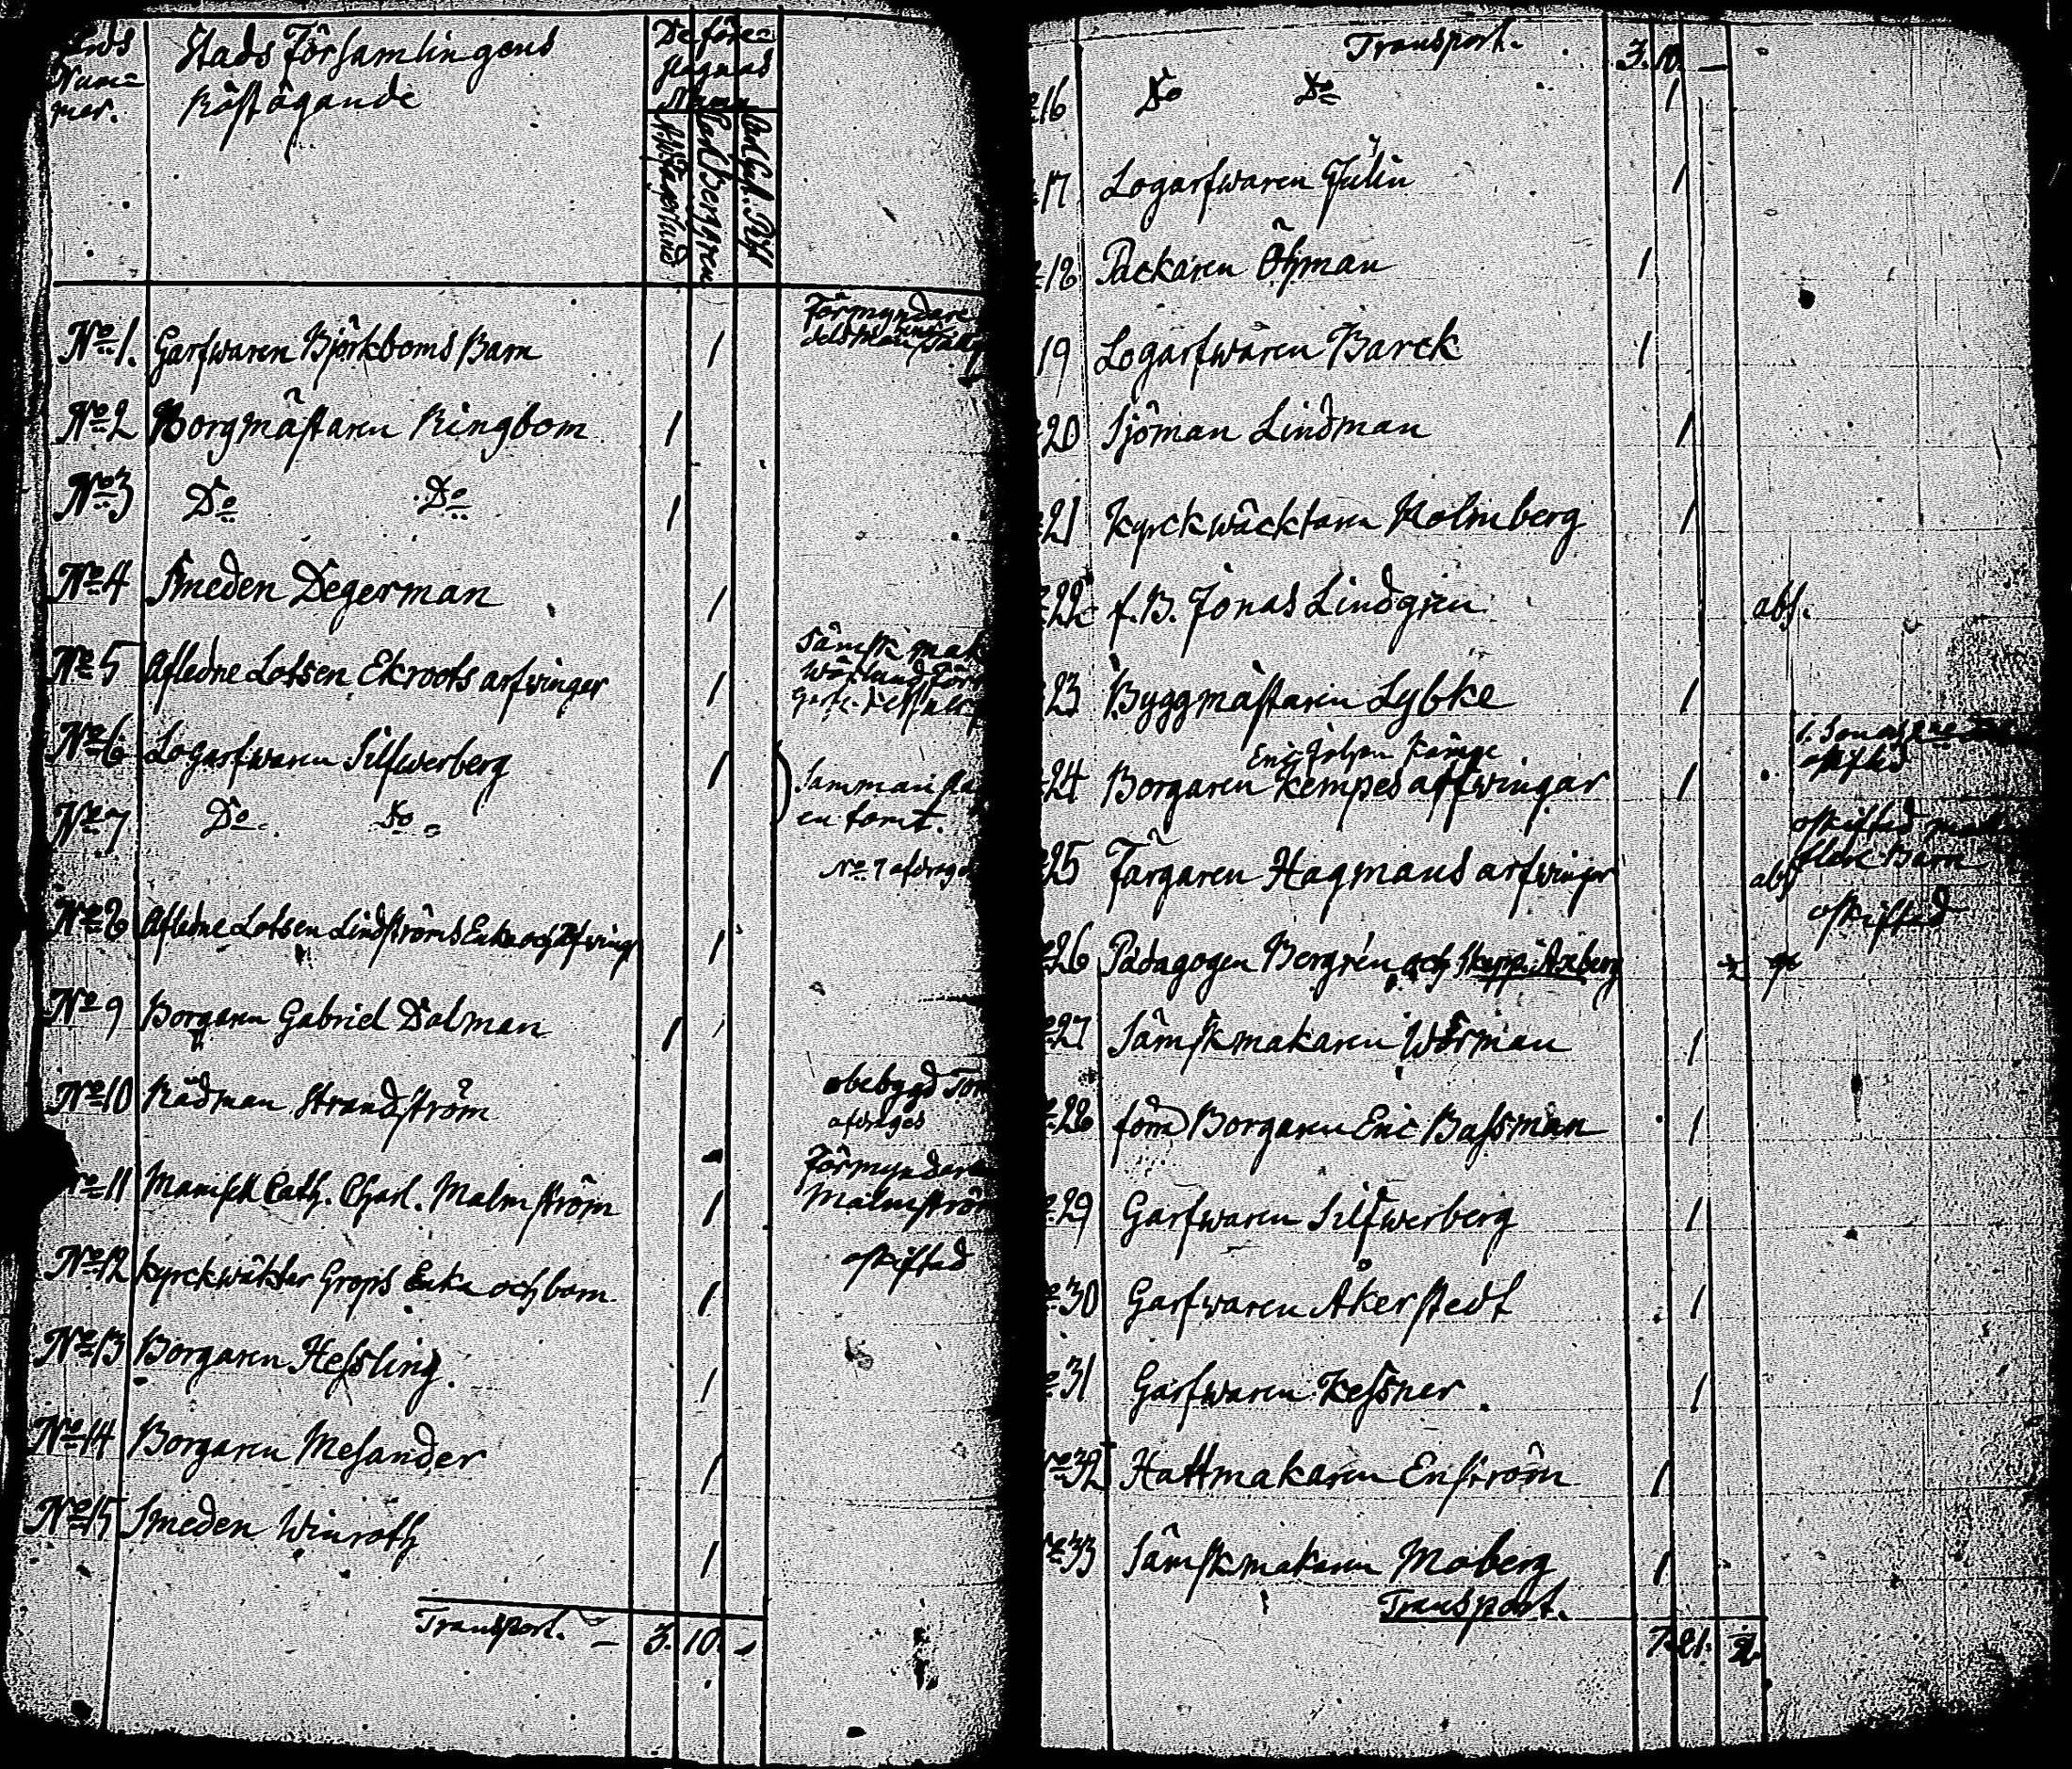 Num=
mer.
Stads Församlingens
Röstägande
De före=
slagnas
Namn
Carl Berggren
N:o 1. Garfwaren Björkboms Barn 1 Förmyndare
N:o 2 Borgmästaren Ringbom 1
N:o 3 D:o D:o 1
N:o 4 Smeden Degerman 1
N:o 5 Afledne Lotsen Ekroots arfwinger 1 Sämsk mak
N:o 6 Logarfwaren Silfwerberg 1 Samman
N:o 7 D:o D:o en tomt.
N:o 7 afdrages
N:o 8 Afledne Lotsen Lindströms Enka och Arfwing 1
N:o 9 Borgaren Gabriel Dalman 1
N:o 10 Rådman Strandström obebygd Tom
afdrages
N:o 11 Mamsell Cath. Charl. Malmström 1 Förmyndare
Malmström
N:o 12 Kyrckwäkter Grops Enka och barn 1 oskiftad
N:o 13 Borgaren Hessling. 1
N:o 14 Borgaren Mesander 1
N:o 15 Smeden Winroth 1
Transport. — 3. 10. —
Transport. 3. 10. —
16 D:o D:o 1
17 Logarfwaren Julin 1
18 Packaren Öhman 1
19 Logarfwaren Barck 1
20 Sjöman Lindman 1
21 Kyrckwäcktaren Holmberg 1
22 f.B. Jonas Lindgren abs.
23 Byggmästaren Lybke 1
Eric Johan Kämpe
24 Borgaren Kempes arfwingar 1 oskiftad
oskiftad
25 Färgaren Hagmans arfwinger abs flere Barn
oskiftad
26 Pädagogen Bergrén och Skepp. Axberg
27 Sämskmakaren Wörman 1
28 förra Borgaren Eric Bassman 1
29 Garfwaren Silfwerberg 1
30 Garfwaren Åkerstedt 1
31 Garfwaren Kessner 1
N:o 32 Hattmakaren Enström 1
N:o 33 Sämskmakaren Moberg 1
Transport.
7. 21.